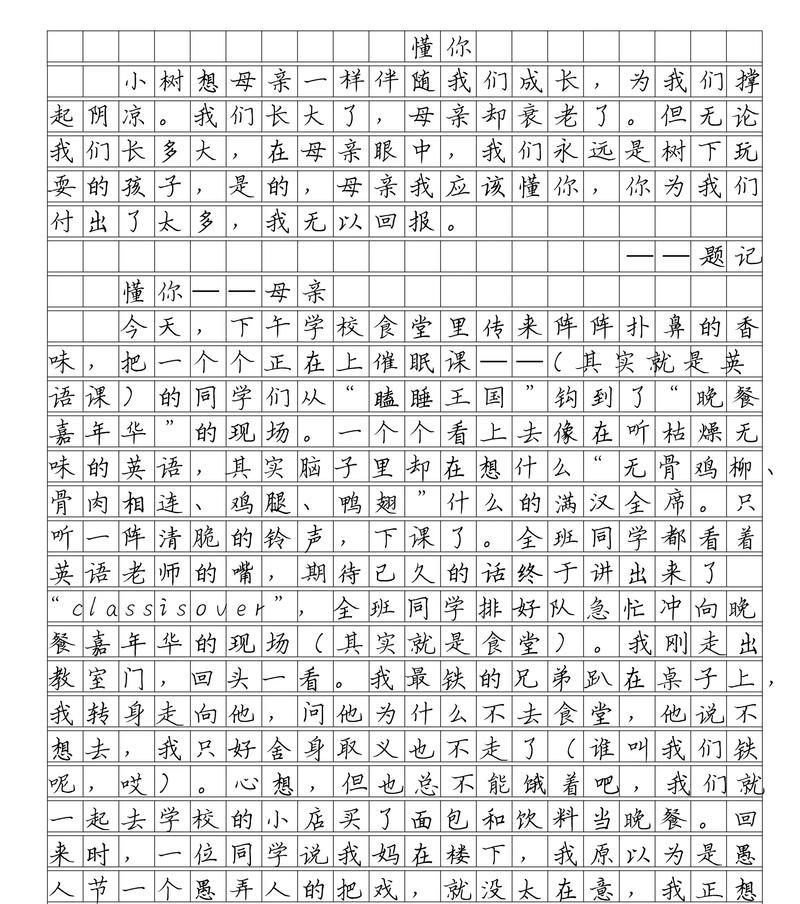 懂你
小树想母亲一样伴随我们成长，为我们撑
起阴凉。我们长大了，母亲却衰老了。但无论
我们长多大，在母亲眼中，我们永远是树下玩
耍的孩子，是的，母亲我应该懂你，你为我们
付出了太多，我无以回报。
——题记
懂你——母亲
今天，下午学校食堂里传来阵阵扑鼻的香
味，把一个个正在上催眠课——（其实就是英
语课）的同学们从“瞌睡王国”钩到了“晚餐
嘉年华”的现场。一个个看上去像在听枯燥无
味的英语，其实脑子里却在想什么“无骨鸡柳、
骨肉相连、鸡腿、鸭翅”什么的满汉全席。只
听一阵清脆的铃声，下课了。全班同学都看着
英语老师的嘴，期待已久的话终于讲出来了
“classisover”，全班同学排好队急忙冲向晚
餐嘉年华的现场（其实就是食堂）。我刚走出
教室门，回头一看。我最铁的兄弟趴在桌子上，
我转身走向他，问他为什么不去食堂，他说不
想去，我只好舍身取义也不走了（谁叫我们铁
呢，哎）。心想，但也总不能饿着吧，我们就
一起去学校的小店买了面包和饮料当晚餐。回
来时，一位同学说我妈在楼下，我原以为是愚
人节一个愚弄人的把戏，就没太在意，我正想